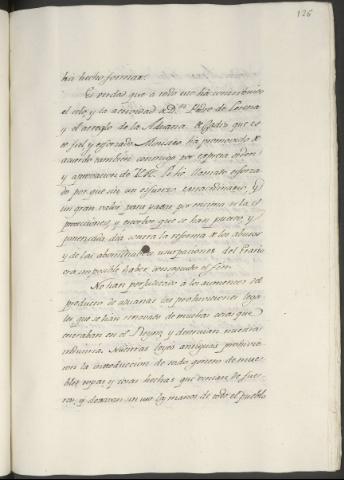 126
ha hecho formar.
Es verdad que a todo me ha contribuido
el celo y la actividad de Dn. Pedro de Lerena
y el arreglo de la Aduana de Cadiz que es
te fiel y esforzado Ministro ha promovido de
acuerdo tambien conmigo por expresa orden
y aprovacion de V.M. Le he llamado esforza
do por que sin un esfuerzo extraordinario, y
un gran valor para vencer por mi
protecciones, y estorbos que se han puesto, y
ponen cada dia contra la reforma de los abusos
y de las abominables usurpaciones del Erario
era imposible haber conseguido el fin.
No han perjudicado a los aumentos del
producto de aduanas las prohiviciones lega
les que se han renovado de muchas cosas que
entraban en el Reyno y destruian nuestra
industria. Nuestras leyes antiguas prohivie
ron la introduccion de todo genero de mue
bles ropas y cosas hechas que venian de fue
ra, y dexavan sin uso las manos de todo el pueblo